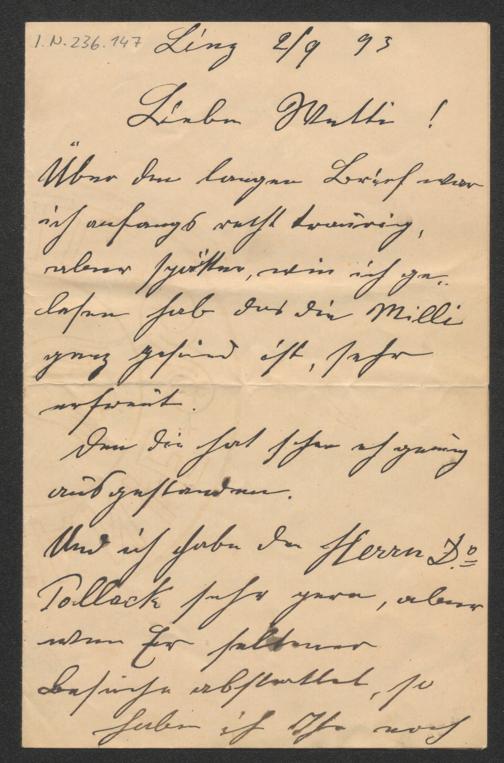 I.N. 236.147
Linz 2/9 93
Liebe Wetti!
Über den langen Brief war
ich anfangs recht traurig,
aber später, wie ich ge-
lesen hab das die Milli
ganz gesund ist, sehr
erfreut.
Den die hat schon eh genug
ausgestanden.
Und ich habe den Herrn Dr.
Pollack sehr gern, aber
wenn Er seltener
Besuche abstattet, so
habe ich Ihn noch